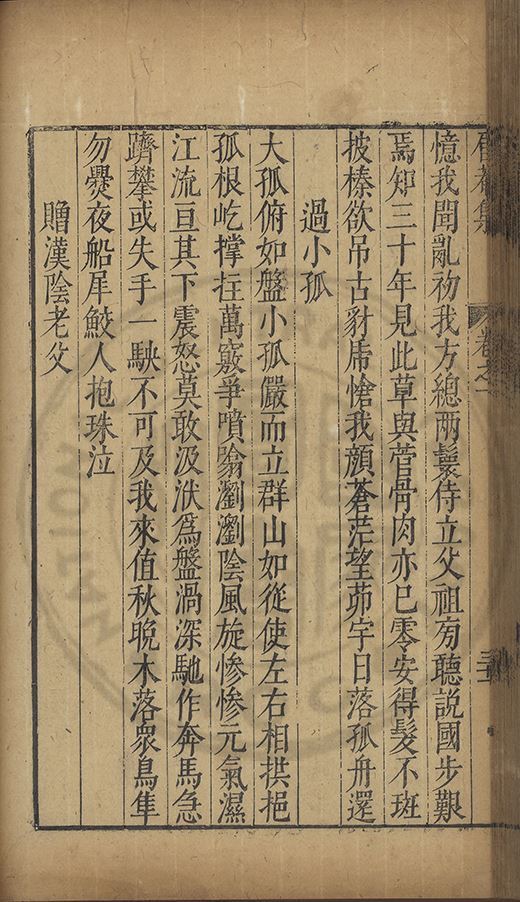 憶我聞亂初我方總两鬟侍立父祖旁聽説國步艱
焉知三十年見此草與菅骨肉亦已零安得髮不斑
披榛欲弔古豺虎愴我顔蒼茫望茆宇日落孤舟還
過小孤
大孤俯如盤小孤儼而立群山如從使左右相拱挹
孤根屹撑拄萬竅爭噴翕瀏瀏陰風旋慘慘元氣濕
江流亘其下震怒莫敢汲洑爲盤渦深馳作奔馬急
躋攀或失手一駃不可及我來值秋晚木落衆鳥隼
勿㸑夜船犀鮫人抱珠泣
贈漢陰老父